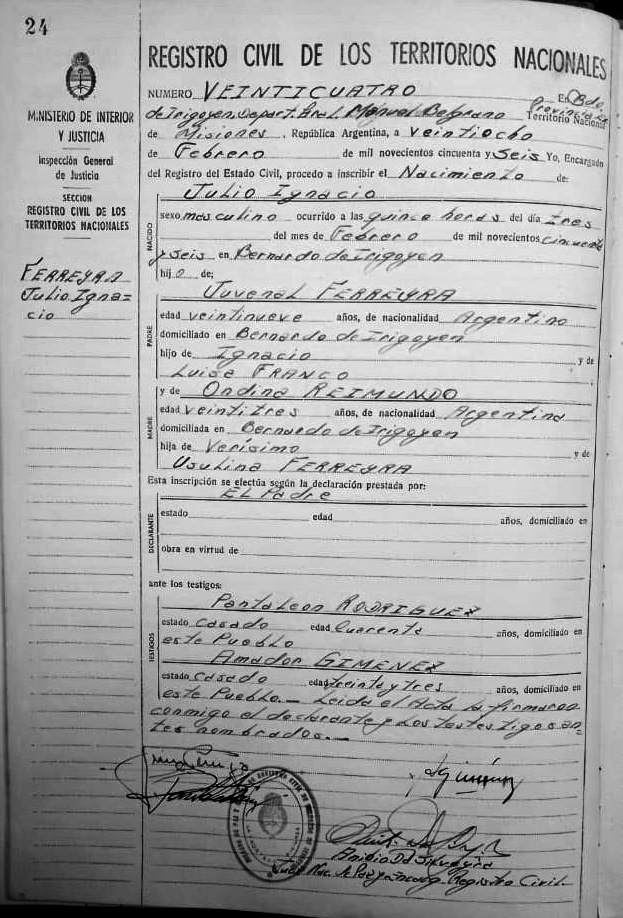 24
MINISTERIO DE INTERIOR
Y JUSTICIA
Inspección General
de Justicia
SECCION
REGISTRO CIVIL DE LOS
TERRITORIOS NACIONALES
FERREYRA
Julio Igna=
cio
REGISTRO CIVIL DE LOS TERRITORIOS NACIONALES
NUMERO VEINTICUATRO En Bdo.
de Irigoyen, Depart. Gral. Manuel Belgrano Provincia de Territorio Nacional
de Misiones, República Argentina, a veintiocho
de Febrero de mil novecientos cincuenta y seis Yo, Encargado
del Registro del Estado Civil, procedo a inscribir el Nacimiento de:
NACIDO
Julio Ignacio
sexo masculino ocurrido a las quince horas del día tres
del mes de Febrero de mil novecientos cincuenta
y seis en Bernardo de Irigoyen
hijo de:
PADRE
Juvenal FERREYRA
edad veintinueve años, de nacionalidad Argentino
domiciliado en Bernardo de Irigoyen
hijo de Ignacio y de
Luisa FRANCO
MADRE
y de Ondina REIMUNDO
edad veintitres años, de nacionalidad Argentina
domiciliada en Bernardo de Irigoyen
hija de Verísimo y de
Usulina FERREYRA
Esta inscripción se efectúa según la declaración prestada por:
DECLARANTE
El Padre
estado edad años, domiciliado en
obra en virtud de
ante los testigos:
TESTIGOS
Pantaleon RODRIGUEZ
estado casado edad Cuarenta años, domiciliado en
este Pueblo
Amador GIMENEZ
estado Casado edad treinta y tres años, domiciliado en
este Pueblo.— Leida el Acta la firmaron
conmigo el declarante y los testes tigos an-
tes nombrados.—
Registro Civil.